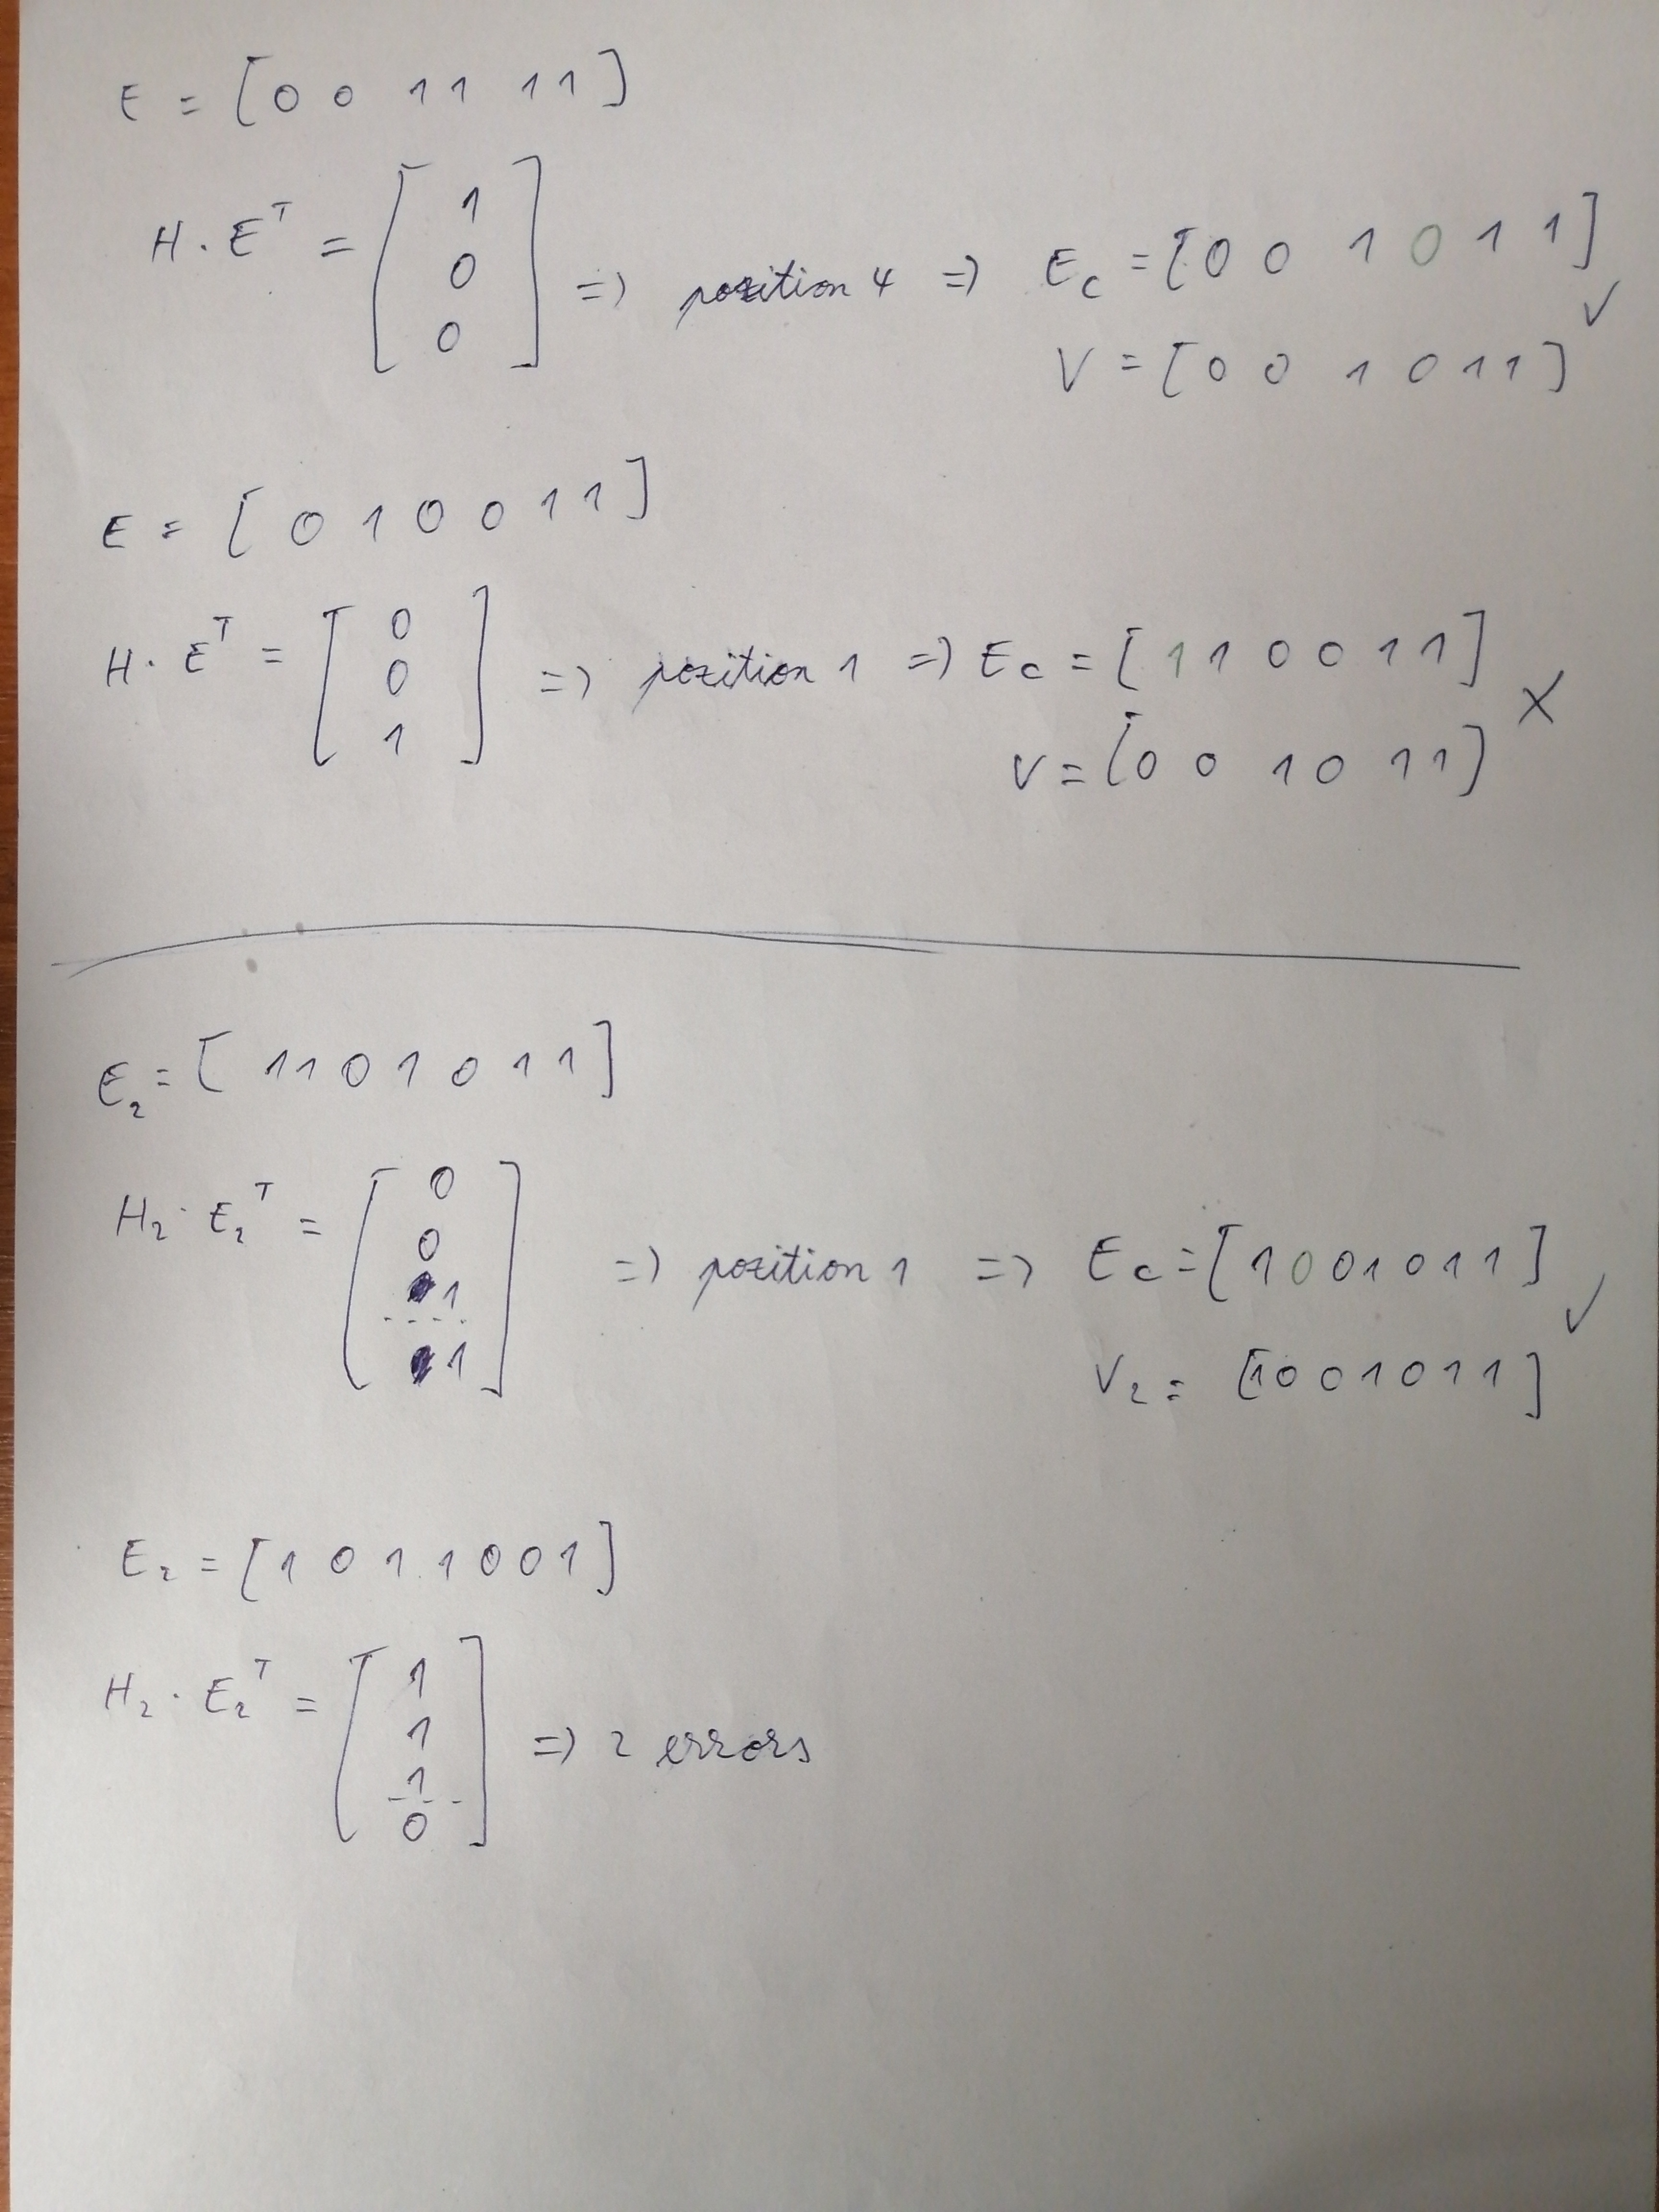 E = [ 0 0 1 1 1 1 ]
H · E^T = [ 1 0 0 ] => pozition 4 => E_c = [ 0 0 1 0 1 1 ] ✓
V = [ 0 0 1 0 1 1 ]
E = [ 0 1 0 0 1 1 ]
H · E^T = [ 0 0 1 ] => pozition 1 => E_c = [ 1 1 0 0 1 1 ] X
V = [ 0 0 1 0 1 1 ]
E_2 = [ 1 1 0 1 0 1 1 ]
H_2 · E_2^T = [ 0 0 1 1 ] => pozition 1 => E_c = [ 1 0 0 1 0 1 1 ] ✓
V_2 = [ 1 0 0 1 0 1 1 ]
E_2 = [ 1 0 1 1 0 0 1 ]
H_2 · E_2^T = [ 1 1 1 0 ] => 2 errors